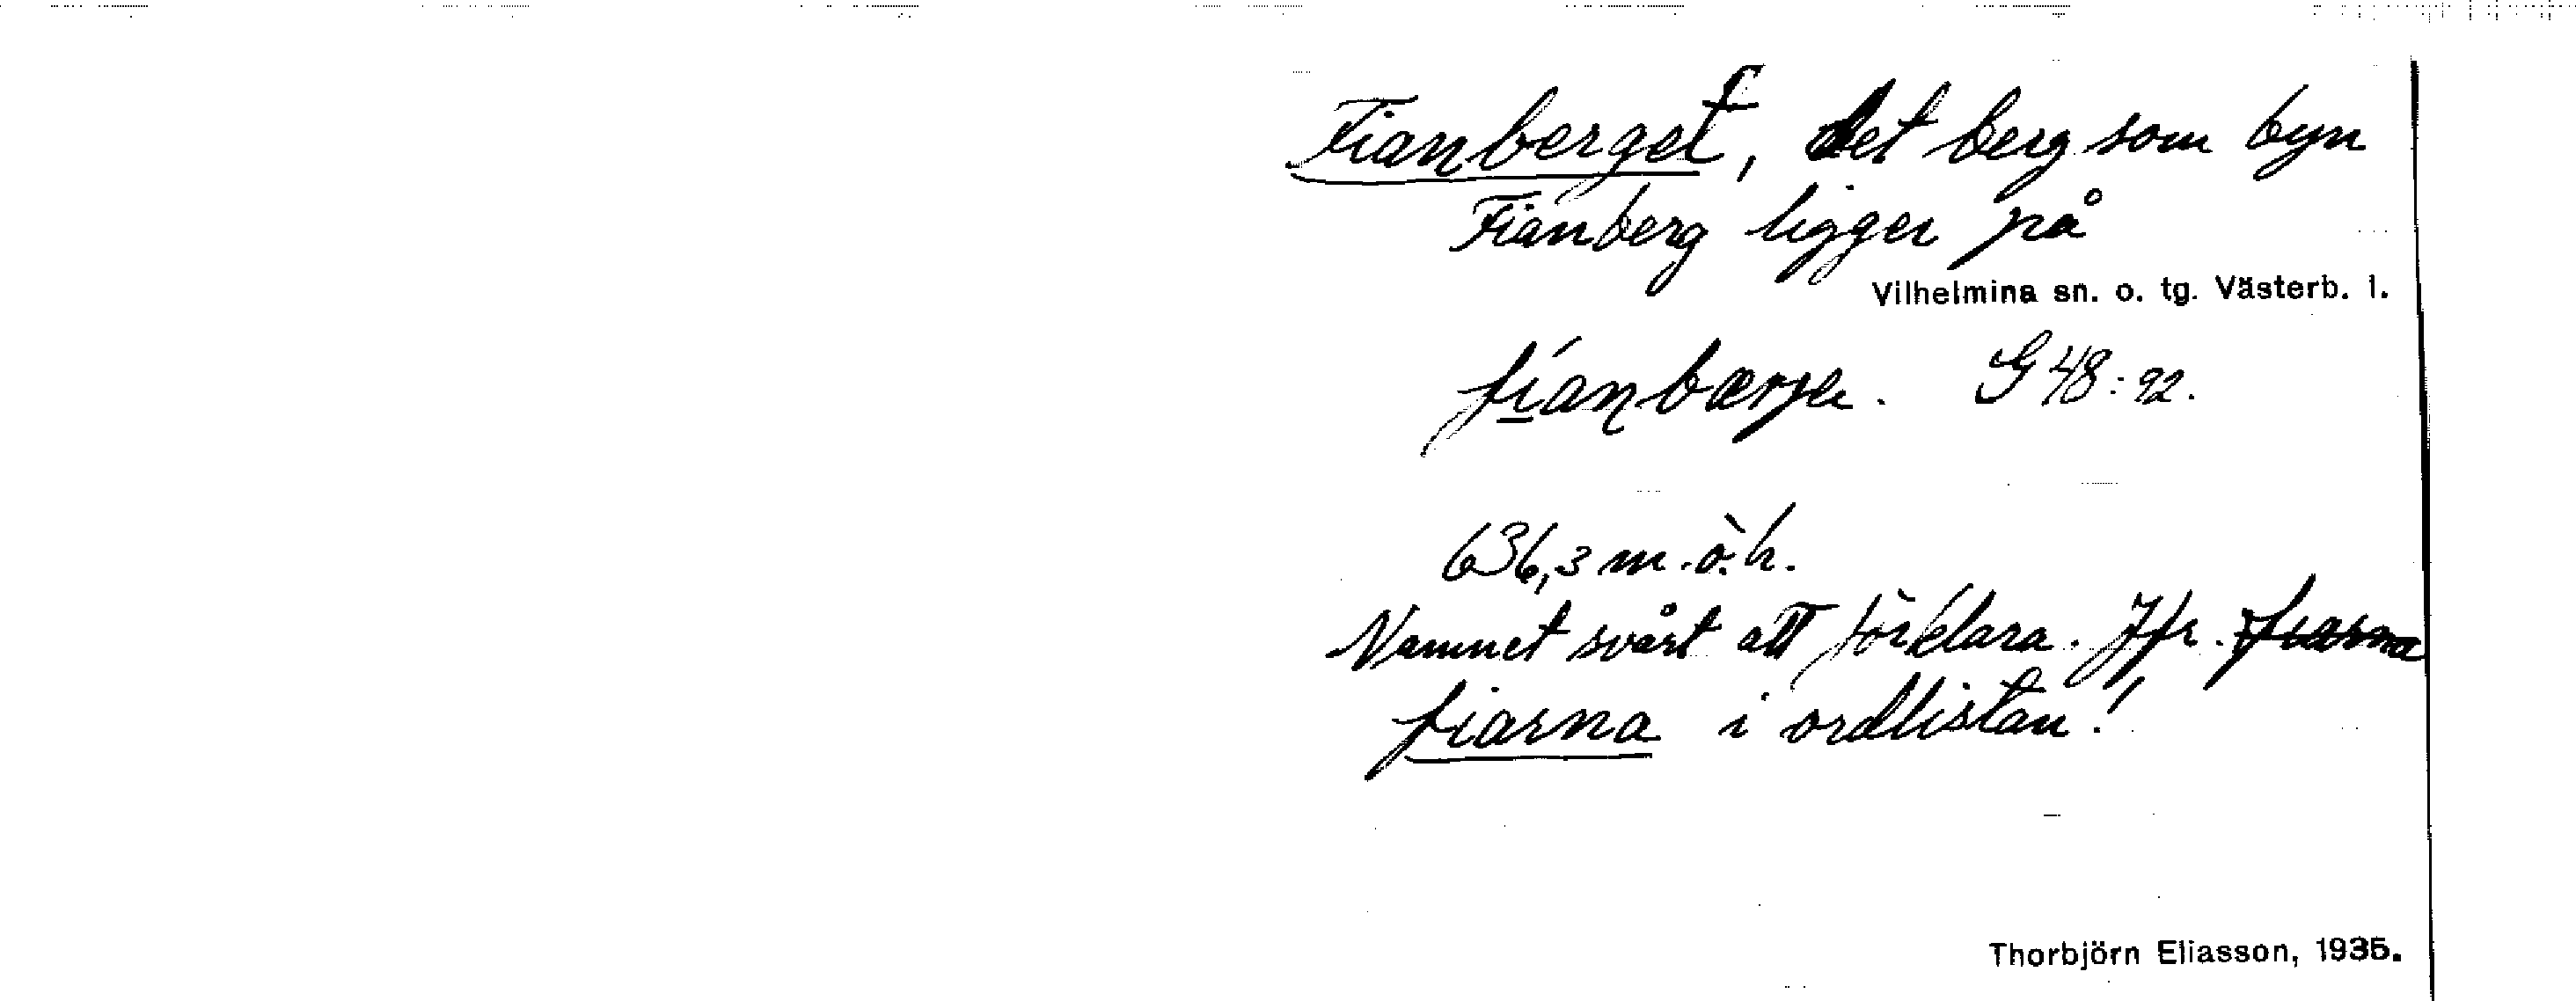 Fianberget, det berg som byn
Fianberg ligger på
Vilhelmina sn. o. tg. Västerb. l.
fíanbærjə. G 48:92.
636,3 m.ö.h.
Namnet svårt att förklara. Jfr. fiarna
fiarna i ordlistan!
Thorbjörn Eliasson, 1935.